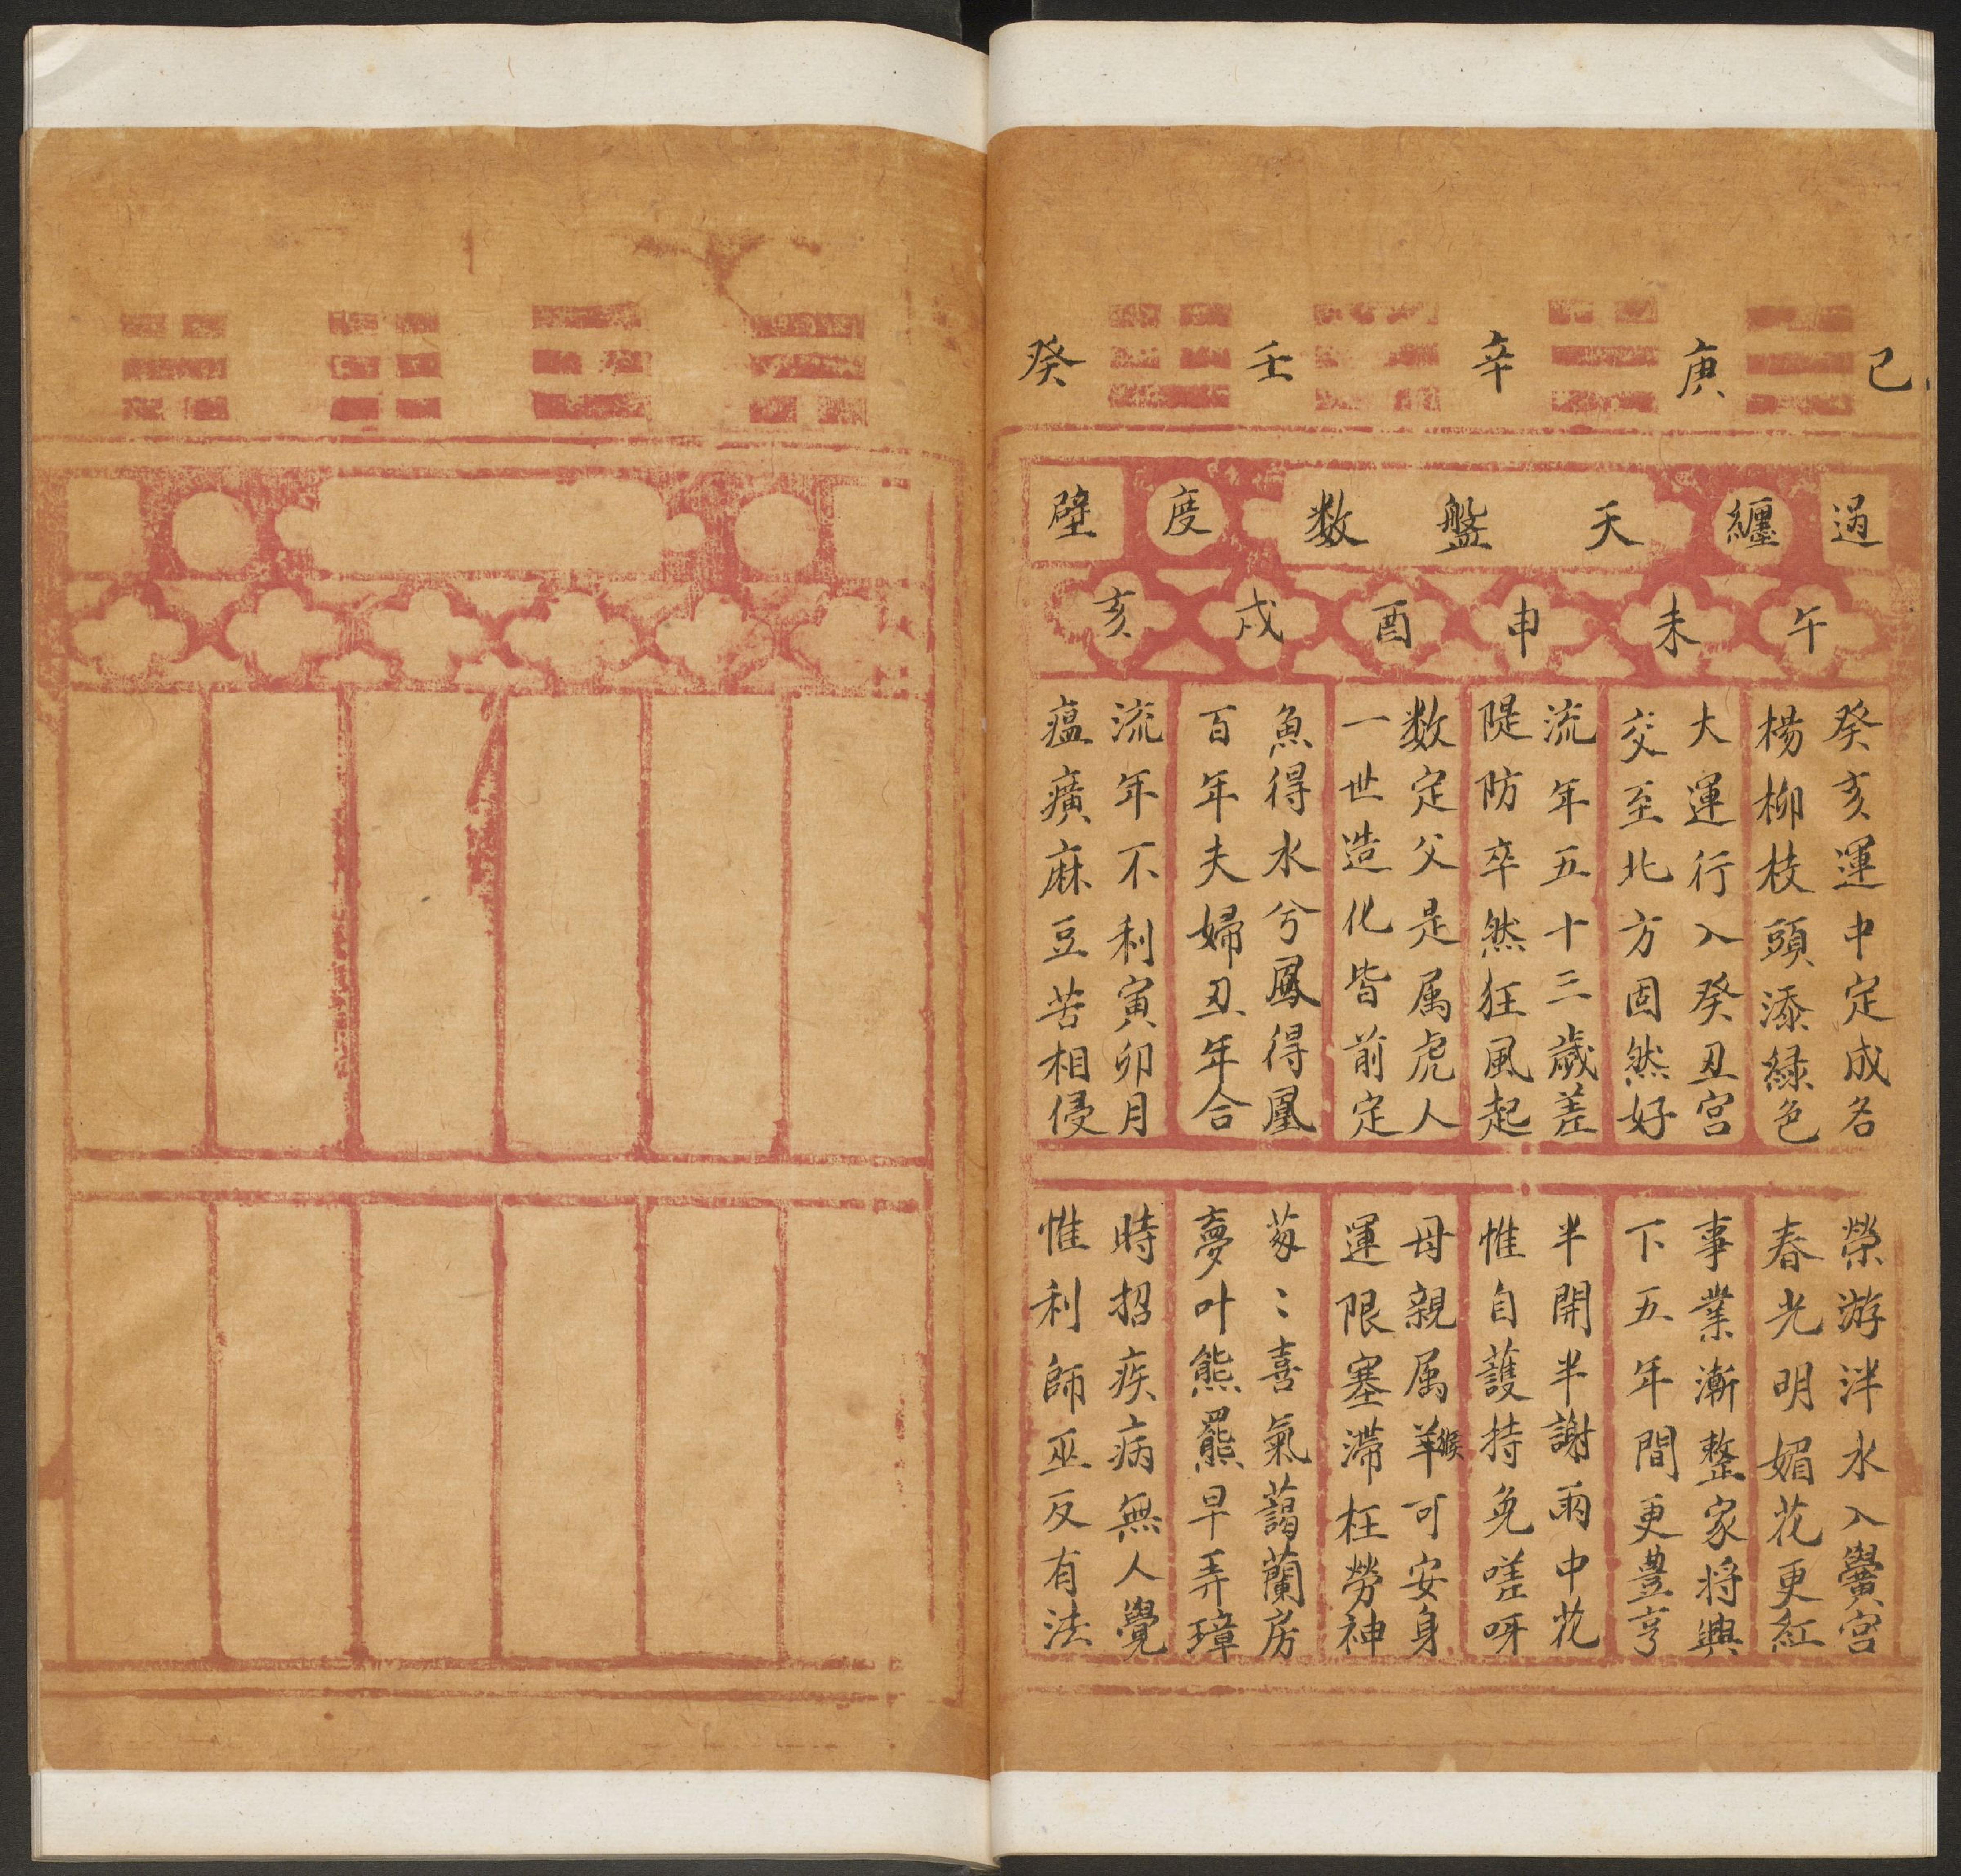 己庚辛壬癸
過纏天盤數度壁
午未申酉戌亥
癸亥運中定成名
楊柳枝頭添緑色
大運行入癸丑宮
交至北方固然好
流年五十三歲差
隄防卒然狂風起
数定父是属虎人
一世造化皆前定
魚得水兮鳳得凰
百年夫婦丑年合
流年不利寅卯月
瘟癀麻豆苦相侵
榮游泮水入黌宮
春光明媚花更紅
事業漸整家将興
下五年間更豊亨
半開半謝雨中花
惟自護持免嗟呀
母親属羊猴可安身
運限塞滞枉勞神
葱〻喜氣藹蘭房
夢叶熊羆早弄璋
時招疾病無人覺
惟利師巫反有法